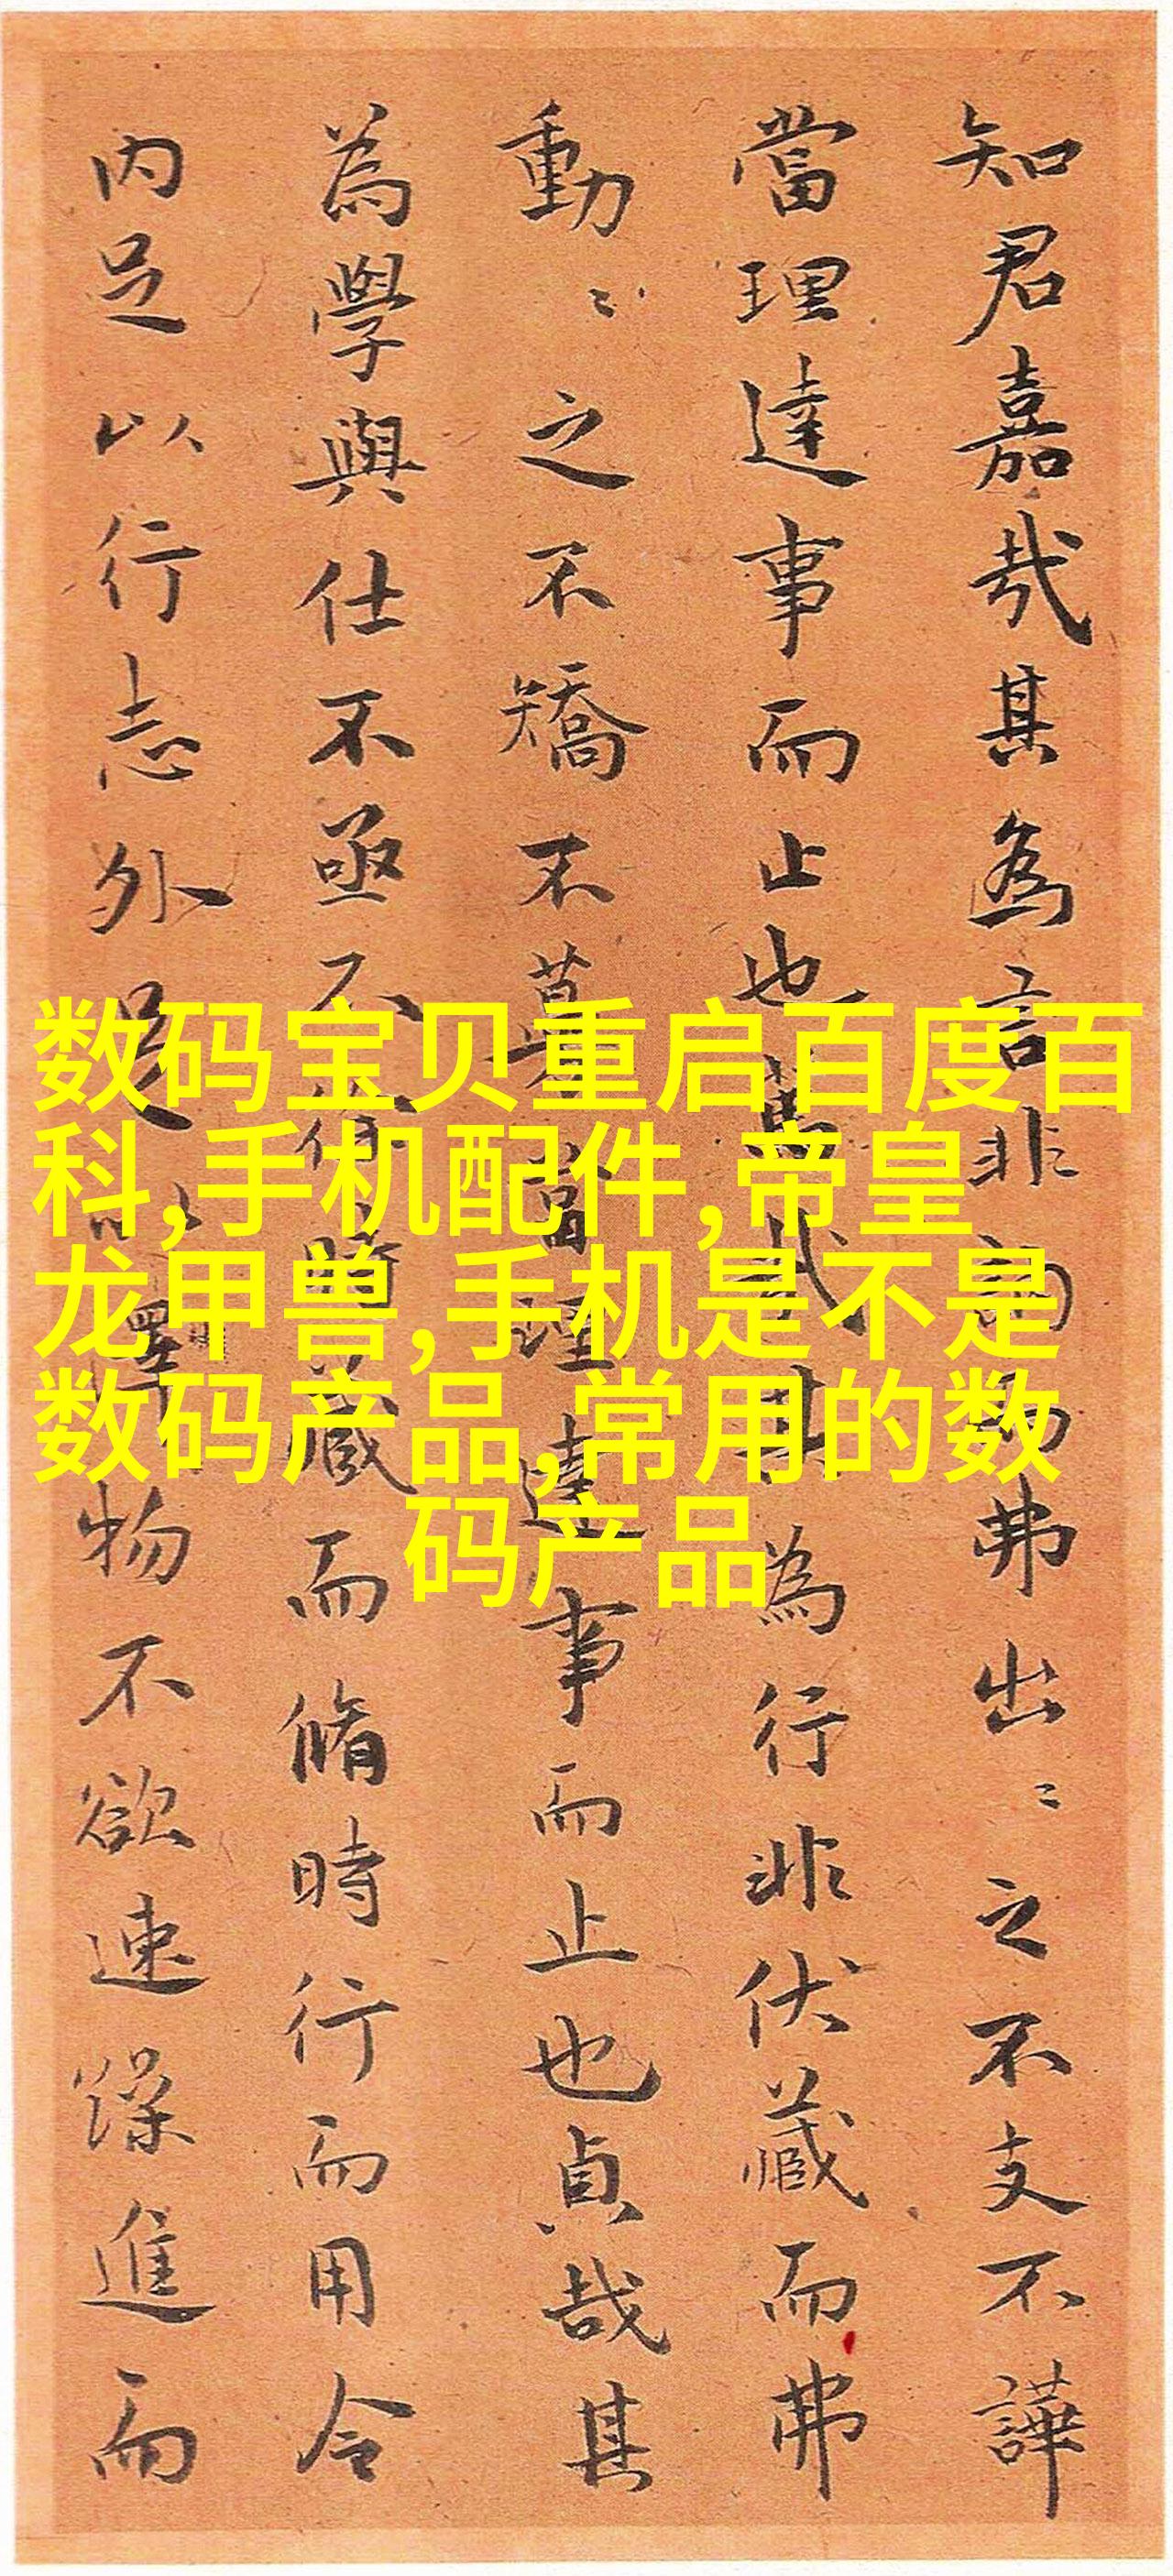 知君嘉哉其為言非詞弗出〻之不支不譁
當理達事而止也貞哉其為行非伏藏而弗
動〻之不矯不慕當理達事而止也貞哉其
為學與仕不亟不徐時藏而脩時行而用令
内足以行志外足以澤物不欲速躁進而
数码宝贝重启百度百
科,手机配件,帝皇
龙甲兽,手机是不是
数码产品,常用的数
码产品